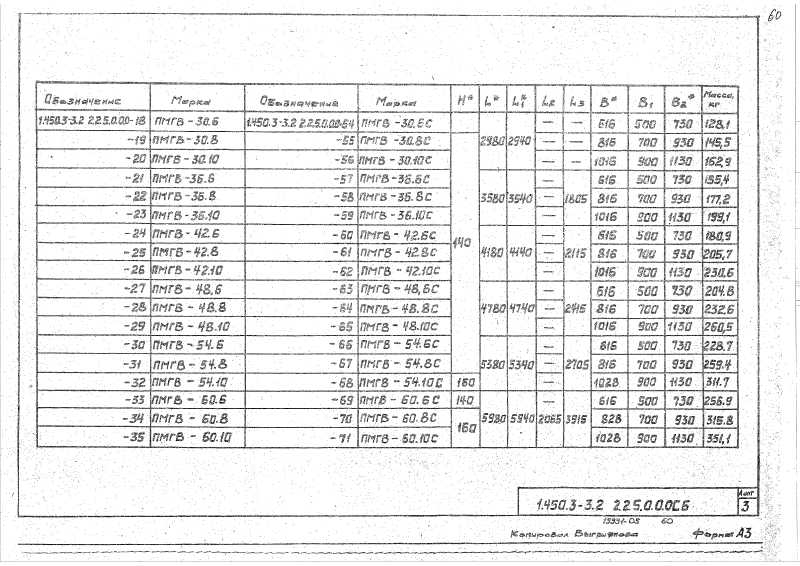 60
Обозначение Марка Обозначение Марка H* L* L1* L2 L3 B* B1 B2* Масса, кг
1.450.3-3.2 2.2.5.0.0.0-18 ПМГВ-30.6 1.450.3-3.2 2.2.5.0.0.0-54 ПМГВ-30.6С 140 2980 2940 — — 616 500 730 128,1
-19 ПМГВ-30.8 -55 ПМГВ-30.8С — — 816 700 930 145,5
-20 ПМГВ-30.10 -56 ПМГВ-30.10С — — 1016 900 1130 162,9
-21 ПМГВ-36.6 -57 ПМГВ-36.6С 3580 3540 — 1805 616 500 730 155,4
-22 ПМГВ-36.8 -58 ПМГВ-36.8С — 816 700 930 177,2
-23 ПМГВ-36.10 -59 ПМГВ-36.10С — 1016 900 1130 199,1
-24 ПМГВ-42.6 -60 ПМГВ-42.6С 4180 4140 — 2115 616 500 730 180,9
-25 ПМГВ-42.8 -61 ПМГВ-42.8С — 816 700 930 205,7
-26 ПМГВ-42.10 -62 ПМГВ-42.10С — 1016 900 1130 230,6
-27 ПМГВ-48.6 -63 ПМГВ-48.6С 4780 4740 — 2415 616 500 730 204.8
-28 ПМГВ-48.8 -64 ПМГВ-48.8С — 816 700 930 232,6
-29 ПМГВ-48.10 -65 ПМГВ-48.10С — 1016 900 1130 260,5
-30 ПМГВ-54.6 -66 ПМГВ-54.6С 5380 5340 — 2705 616 500 730 228,7
-31 ПМГВ-54.8 -67 ПМГВ-54.8С — 816 700 930 259.4
-32 ПМГВ-54.10 -68 ПМГВ-54.10С 160 — 1028 900 1130 311.7
-33 ПМГВ-60.6 -69 ПМГВ-60.6С 140 5980 5940 2065 3915 616 500 730 256.9
-34 ПМГВ-60.8 -70 ПМГВ-60.8С 160 828 700 930 315.8
-35 ПМГВ-60.10 -71 ПМГВ-60.10С 1028 900 1130 351,1
1.450.3-3.2 2.2.5.0.0.0СБ
Лист
3
13931-03 60
Копировал Формат А3